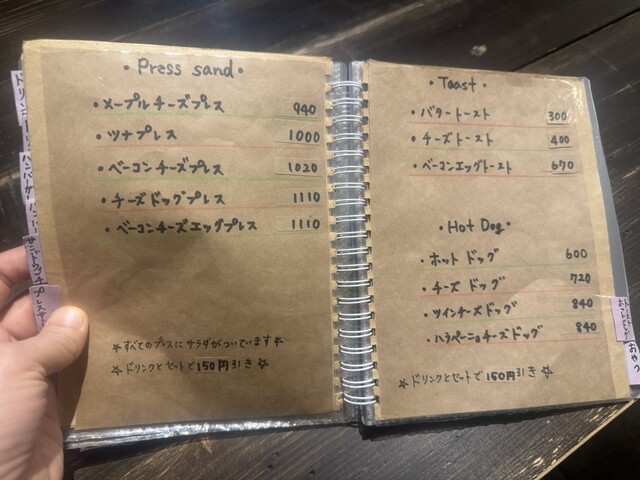 ・Press sand・
・メープルチーズプレス 940
・ツナプレス 1000
・ベーコンチーズプレス 1020
・チーズドッグプレス 1110
・ベーコンチーズエッグプレス 1110
☆すべてのプレスにサラダがついています☆
☆ドリンクとセットで150円引き☆
・Toast・
・バタートースト 300
・チーズトースト 400
・ベーコンエッグトースト 670
・Hot Dog・
・ホットドッグ 600
・チーズドッグ 720
・ツインチーズドッグ 840
・ハラペーニョチーズドッグ 840
☆ドリンクとセットで150円引き☆
サンドウィッチ
プレスサンド
おやつ